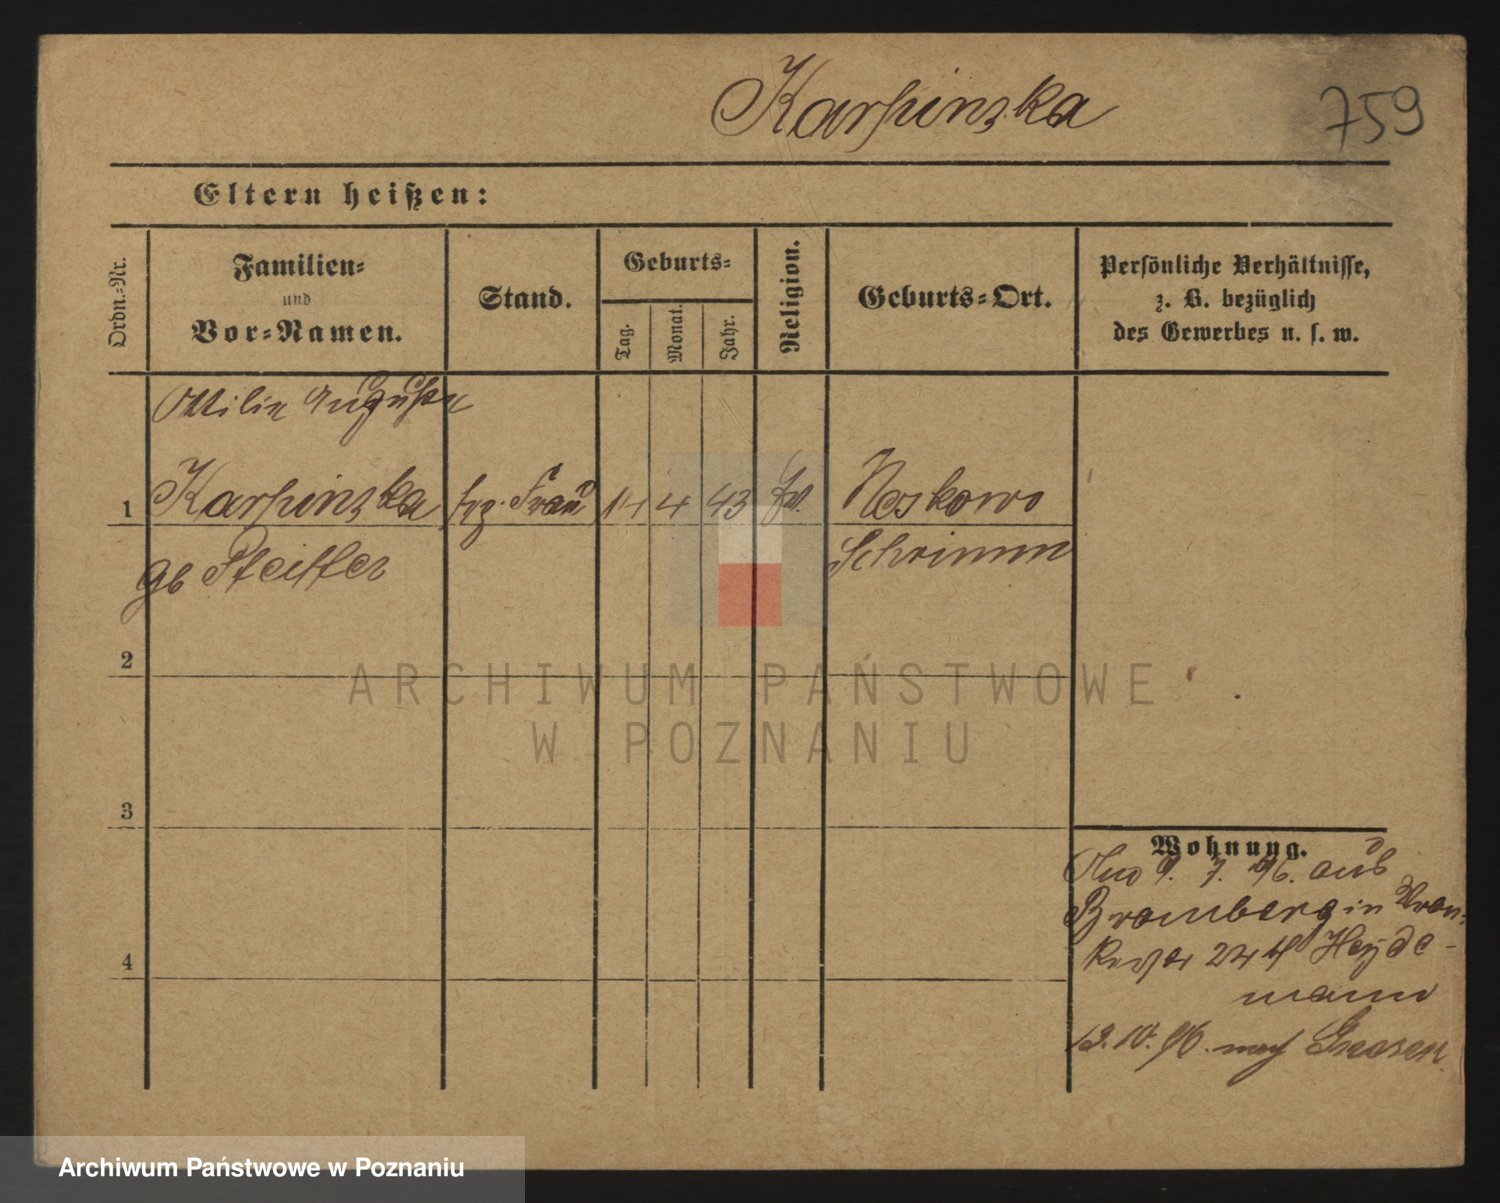 Karpinska
759
Eltern heißen:
Ordn.-Nr.
Familien-
und
Vor-Namen.
Stand.
Geburts-
Tag.
Monat.
Jahr.
Religion.
Geburts-Ort.
Persönliche Verhältnisse,
z. B. bezüglich
des Gewerbes u. s. w.
Ottilie Auguste
1 Karpinska Frau 14 4 43 Neskowo
gb Pfeiffer Schrimm
2
ARCHIWUM PAŃSTWOWE
W POZNANIU
3
Wohnung.
9. 7. 96. aus
Bromberg in
4
Heyde-
mann
13. 10. 96. nach Gnesen
Archiwum Państwowe w Poznaniu